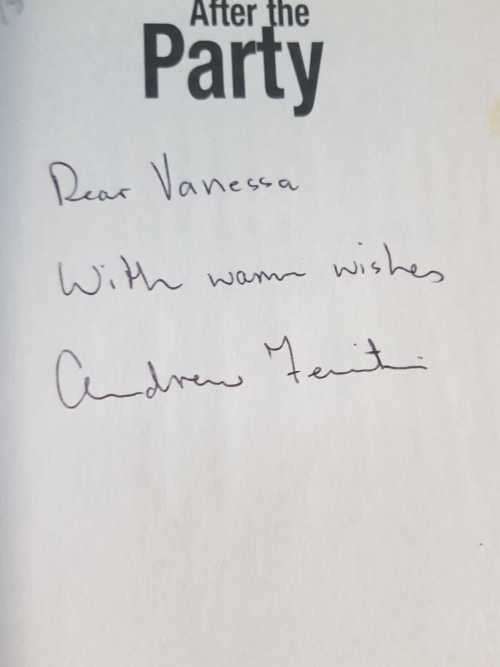 After the
Party
Dear Vanessa
With warm wishes
Andrew Feinstein